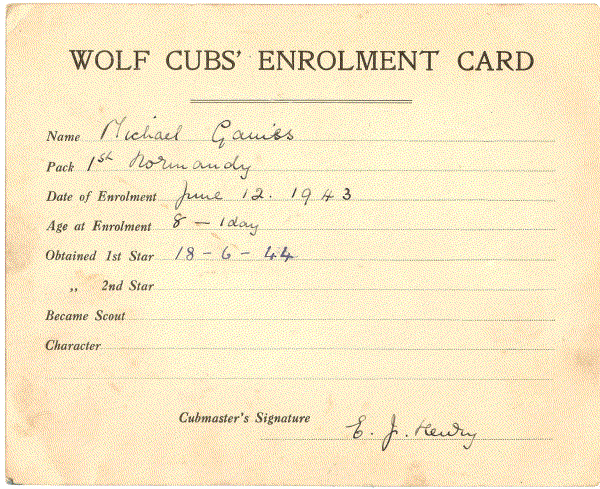 WOLF CUBS' ENROLMENT CARD
Name Michael
Pack 1st Normandy
Date of Enrolment June 12. 1943
Age at Enrolment 8 – 1 day
Obtained 1st Star 18 - 6 - 44
„ 2nd Star
Became Scout
Character
Cubmaster's Signature E. J. Henry